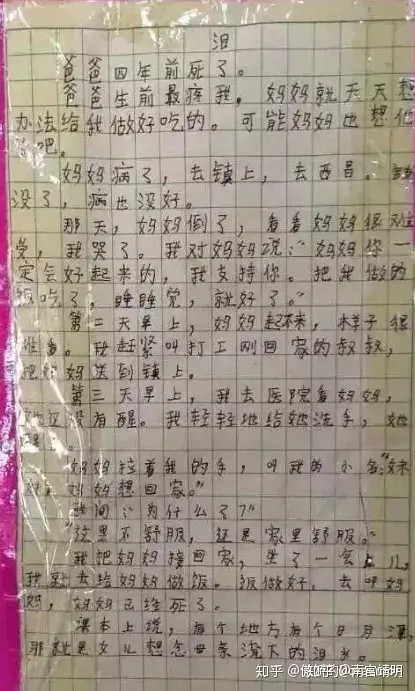 泪
爸爸四年前死了。
爸爸生前最疼我，妈妈就天天想
办法给我做好吃的。可能妈妈也想他
了吧。
妈妈病了，去镇上，去西昌。钱
没了，病也没好。
那天，妈妈倒了，看着妈妈很难
受，我哭了。我对妈妈说：“妈妈你一
定会好起来的，我支持你。把我做的
饭吃了，睡睡觉，就好了。”
第二天早上，妈妈起不来，样子很
难看。我赶紧叫打工刚回家的叔叔，
把妈妈送到镇上。
第三天早上，我去医院看妈妈，
她还没有醒。我轻轻地给她洗手，她
醒了。
妈妈拉着我的手，叫我的小名：“妹
妹，妈妈想回家。”
我问：“为什么了？”
“这里不舒服，还是家里舒服。”
我把妈妈接回家，坐了一会儿，
我就去给妈妈做饭。饭做好，去叫妈
妈，妈妈已经死了。
课本上说，有个地方有个日月潭，
那就是女儿想念母亲流下的泪水。
知乎 @南宫靖明